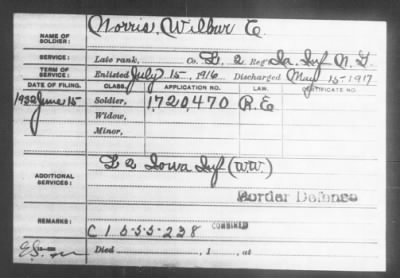 NAME OF SOLDIER: Norris, Wilbur E.
SERVICE: Late rank, Co. L. 2 Reg't Ia. Inf N. G.
TERM OF SERVICE: Enlisted July 15, 1916. Discharged May 15-1917
DATE OF FILING. CLASS. APPLICATION NO. LAW. CERTIFICATE NO.
1932 June 15 Soldier, 1,720,470 R.E
Widow,
Minor,
ADDITIONAL SERVICES: L 2 Iowa Inf (W.W.)
Border Defense
REMARKS: C 1 5-5-5-238 COMBINED
Died , 1 , at